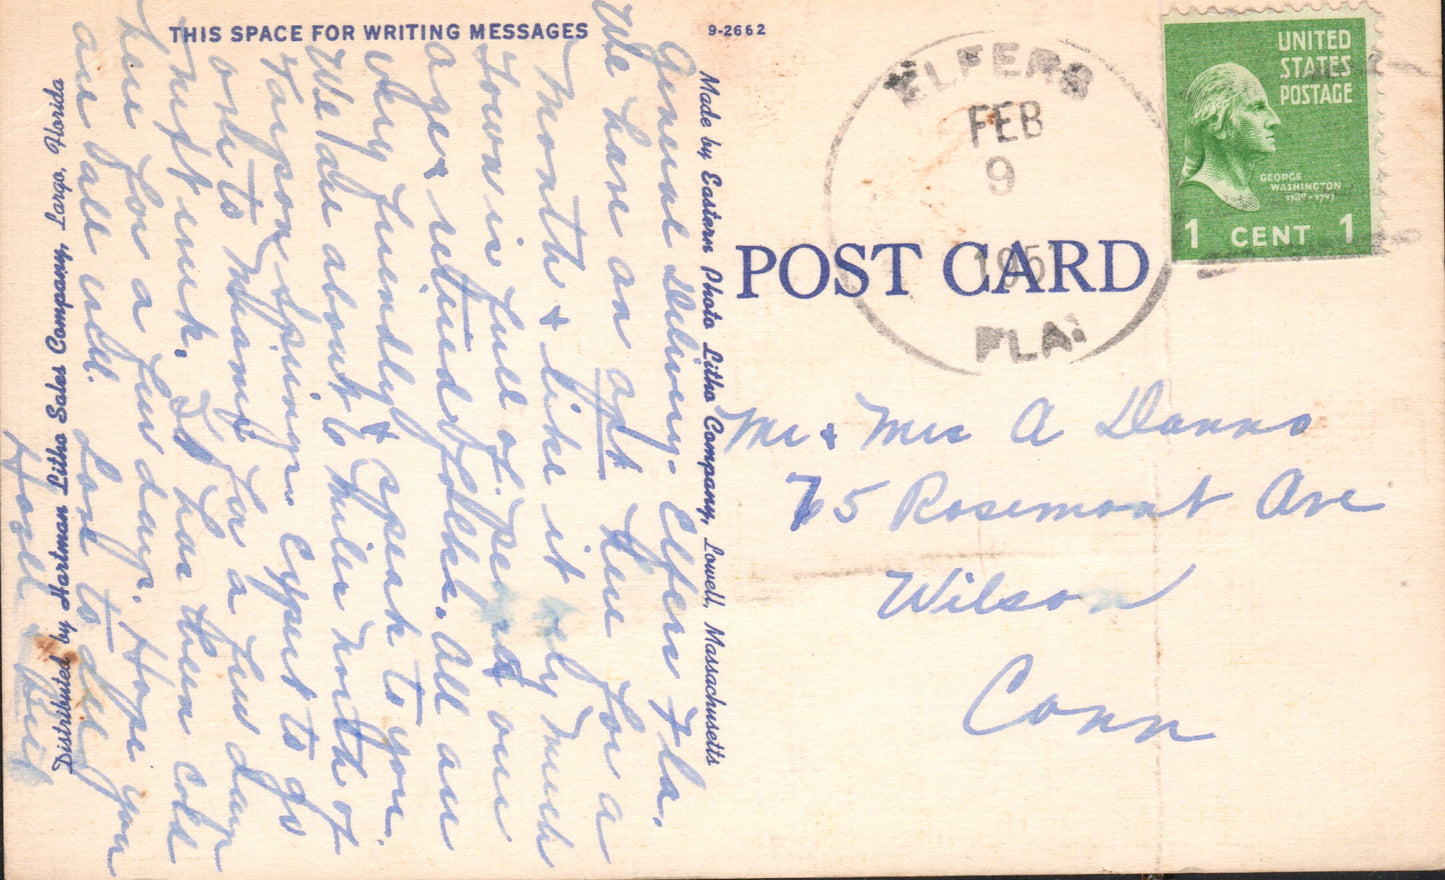 THIS SPACE FOR WRITING MESSAGES
9-2662
General Delivery. Elfers Fla.
We have an apt here for a
month & like it very much
Town is full of people our
age & retired folks. All are
very friendly & speak to you.
We are about 6 miles north of
Tarpon Springs. Expect to go
over to Miami for a few days
next week. It has been cold
here for a few days. Hope you
are all well. Love to all
Hazel
Distributed by Hartman Litho Sales Company, Largo, Florida
Made by Eastern Photo Litho Company, Lowell, Massachusetts
ELFERS
FEB
9
195
FLA.
UNITED
STATES
POSTAGE
GEORGE
WASHINGTON
1789-1797
1 CENT 1
POST CARD
Mr & Mrs A Danno
75 Rosemont Ave
Wilson
Conn